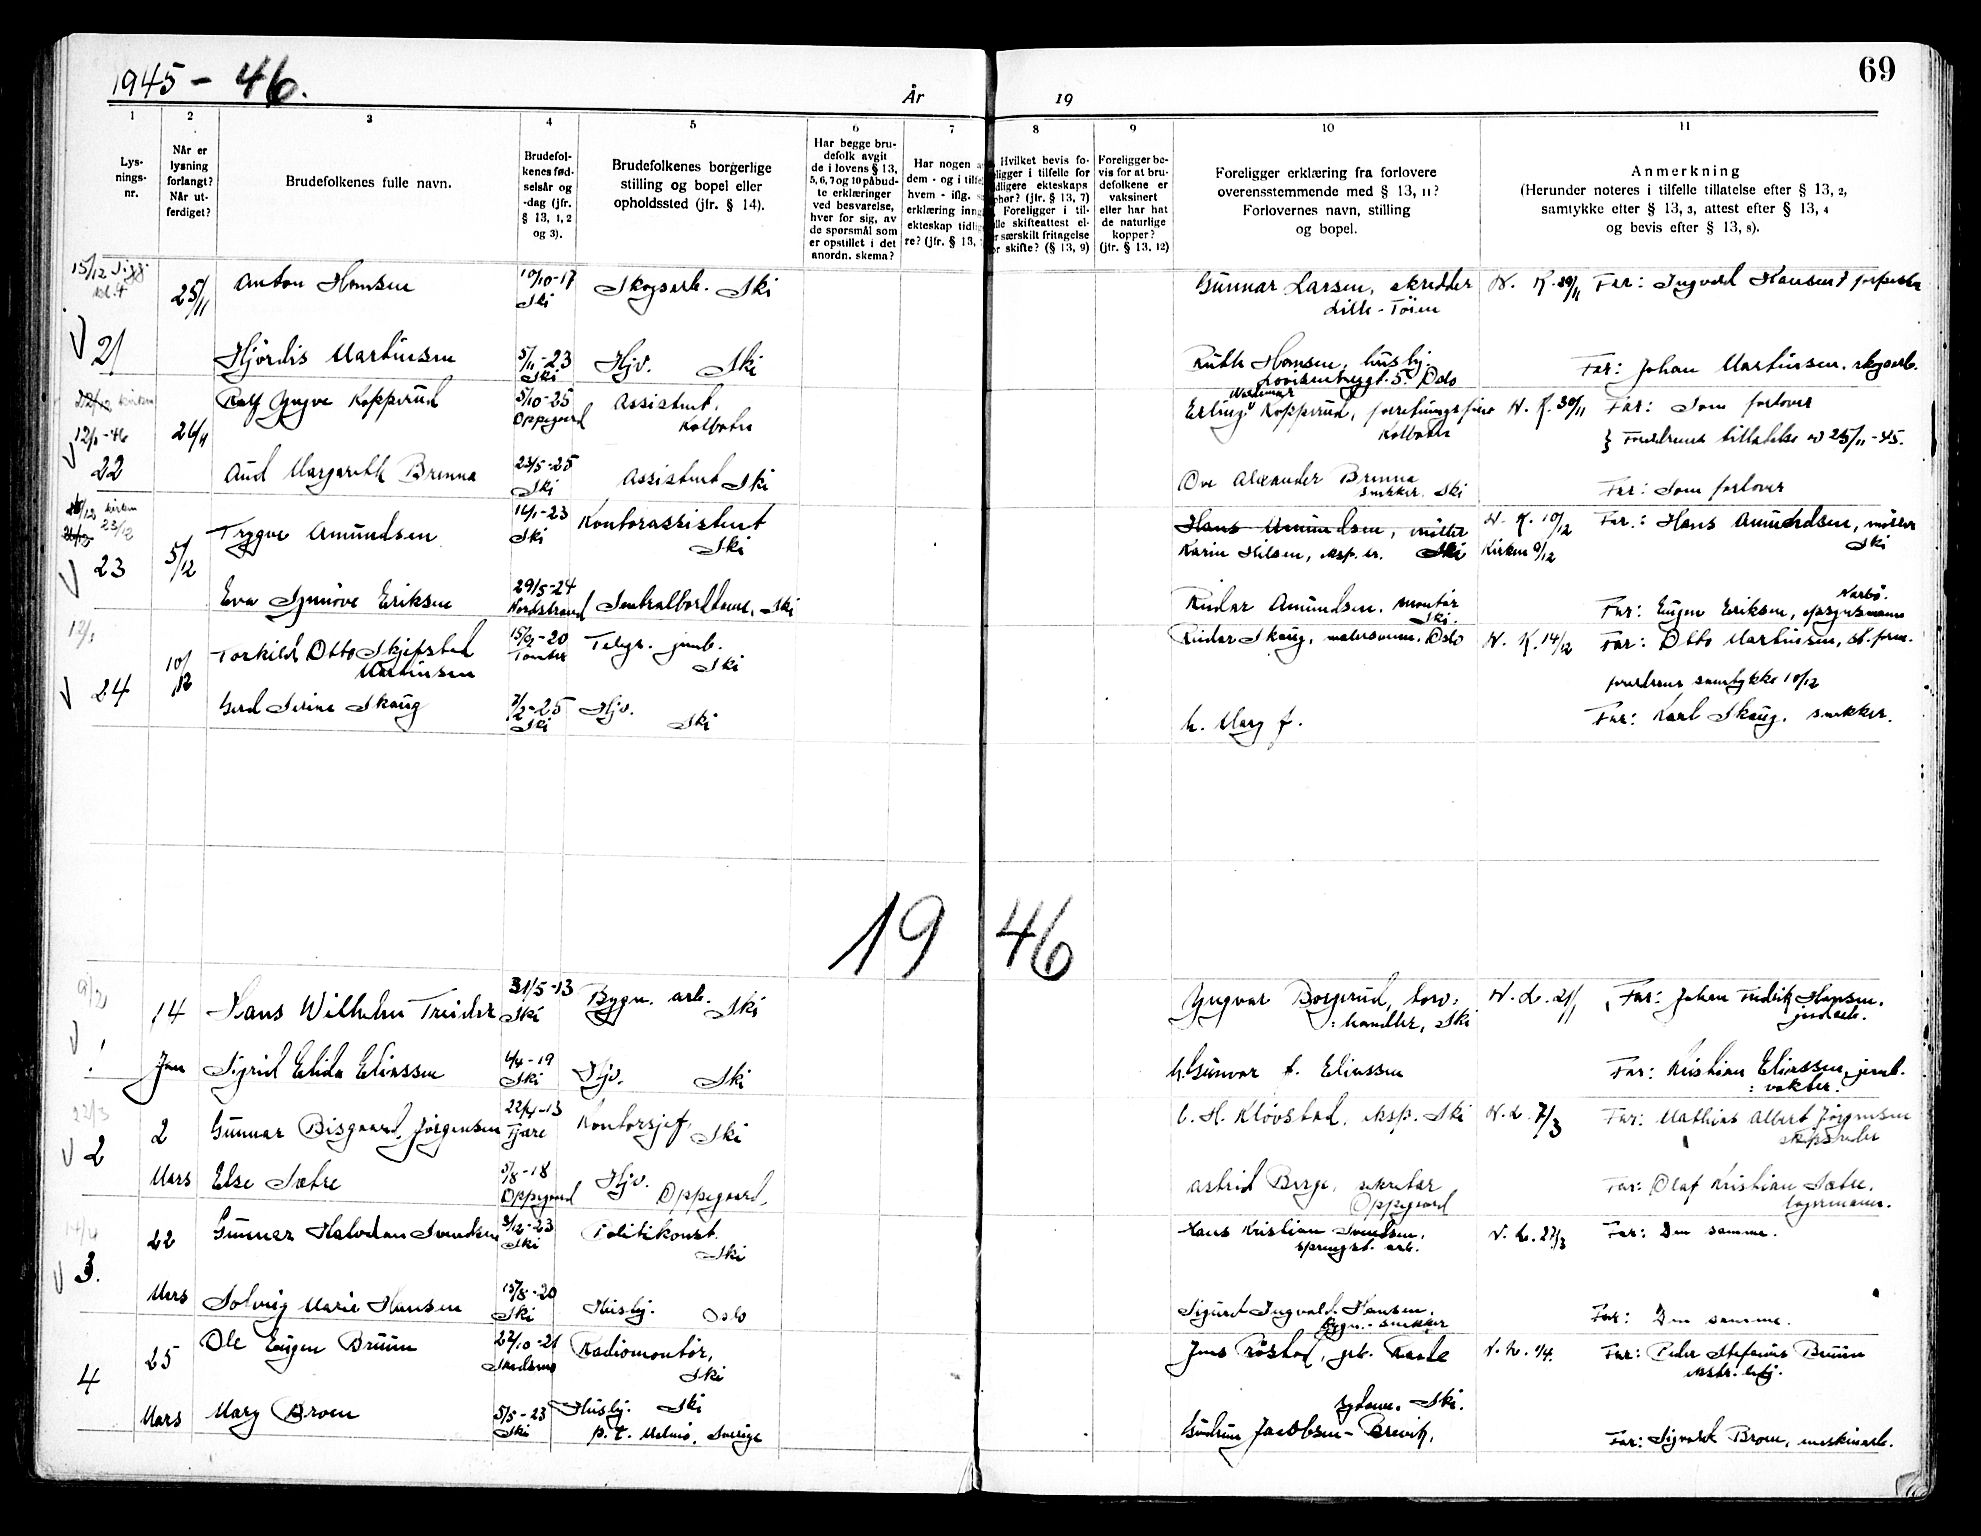 1945 - 46.
År
19
69
1
2
3
4
5
6
7
8
9
10
11
Lys-
nings-
nr.
Når er
lysning
forlangt?
Når ut-
ferdiget?
Brudefolkenes fulle navn.
Brudefol-
kenes fød-
selsår og
-dag (jfr.
§ 13, 1, 2
og 3).
Brudefolkenes borgerlige
stilling og bopel eller
opholdssted (jfr. § 14).
Har begge bru-
defolk avgit
de i lovens § 13,
5, 6, 7 og 10 påbud-
te erklæringer
ved besvarelse,
hver for sig, av
de spørsmål som
er opstillet i det
anordn. skema?
Har nogen a
dem - og i tilfe
hvem - iflg. s
erklæring inng
ekteskap tidlig
re? (jfr. § 13,
Hvilket bevis fo-
ligger i tilfelle for
dligere ekteskaps
phør? (jfr. § 13, 7)
Foreligger i til-
lle skifteattest el-
r særskilt fritagelse
or skifte? (§ 13, 9)
Foreligger be-
vis for at bru-
defolkene er
vaksinert
eller har hat
de naturlige
kopper?
(jfr. § 13, 12)
Foreligger erklæring fra forlovere
overensstemmende med § 13, 11?
Forlovernes navn, stilling
og bopel.
Anmerkning
(Herunder noteres i tilfelle tillatelse efter § 13, 2,
samtykke efter § 13, 3, attest efter § 13, 4
og bevis efter § 13, 8).
15/12
kl. 4
25/11
Anton Hansen
10/10-17
Ski
Skogsarb. Ski
Gunnar Larsen, skredder
Lille-Tøien
N. K. 29/11
Far: Ingvald Hansen
V 21
Hjördis Martinsen
5/11-23
Ski
Hjv. Ski
Ruth Hansen, husbj.
Lovisenberggt. 5. Oslo
Far: Johan Martinsen, skogsarb.
12/1-46
V 22
26/11
Rolf Yngve Kopperud
5/10-25
Oppegaard
Assistent.
Kolbotn
Erling Kopperud, forretningsfører
Kolbotn
N. K. 30/11
Far: Som forlover
Foreldrenes tillatelse 25/11-45.
Aud Margareth Brenna
23/5-25
Ski
Assistent Ski
Ove Alexander Brenna
snekker. Ski
Far: Som forlover
23/12
V 23
5/12
Trygve Amundsen
Ski
Kontorassistent
Ski
Hans Amundsen, møller
Karin Nilsen, Ski
N. K. 10/12
Kirken
Far: Hans Amundsen, møller
Ski
Eva Synnöve Eriksen
29/5-24
Nordstrand
Sentralborddame, Ski
Reidar Amundsen. montør
Ski.
Far: Eugen Eriksen,
12/1
V 24
10/12
Torkild Otto Skjefstad
Martinsen
-20
Tomter
Telegr.
Ski
Reidar Skaug, Oslo
N. K. 14/12
Far: Otto Martinsen,
foreldrenes samtykke 10/12
Gerd Serine Skaug
7/2-25
Ski
Hjv.
Ski
h. Mary f.
Far: Karl Skaug. snekker.
19 46
V 1
14
Jan
Hans Wilhelm Treider
31/5-13
Ski
Bygn. arb.
Ski
Yngvar Borgerud,
handler, Ski
N. L. 21/1
Far: Johan Fredrik Hansen.
Sigrid Elida Eliassen
4/4-19
Ski
Hjv. Ski
h. Gunvor f. Eliassen
Far: Kristian Eliassen,
vokter.
22/3
V 2
2
Mars
Gunnar Bisgaard Jörgensen
22/4-13
Tjøre
Kontorsjef,
Ski
C. H. Klovstad, Ski
N. L. 7/3
Far: Mathias Albert Jörgensen
skipsreder
Else Sætre
5/8-18
Oppegaard
Hjv.
Oppegaard.
Astrid Berge, sekretær
Oppegaard
Far: Olaf Kristian Sætre.
lagermann.
V 3.
22
Mars
Gunnar Halvdan Svendsen
9/12-23
Ski
Politikonst.
Ski
Hans Kristian Svendsen.
sprengst. arb.
N. L. 27/3
Far: Den samme.
Solveig Marie Hansen
15/8-20
Ski
Husbj. Oslo
Sigurd Ingvald Hansen.
Bygn.-snekker
Far: Den samme.
4
25
Mars
Ole Eugen Bruun
22/10-21
Skedsmo
Radiomontør,
Ski
Jens Röstad,
N. L. 1/4.
Far: Peder Stefanus Bruun
Mary Broen
5/5-23
Ski
Husbj. Ski
p. t. Malmö, Sverige
sydame. Ski.
Gudrun Jacobsen- Brevik,
Far: Sigvald Broen, maskinarb.